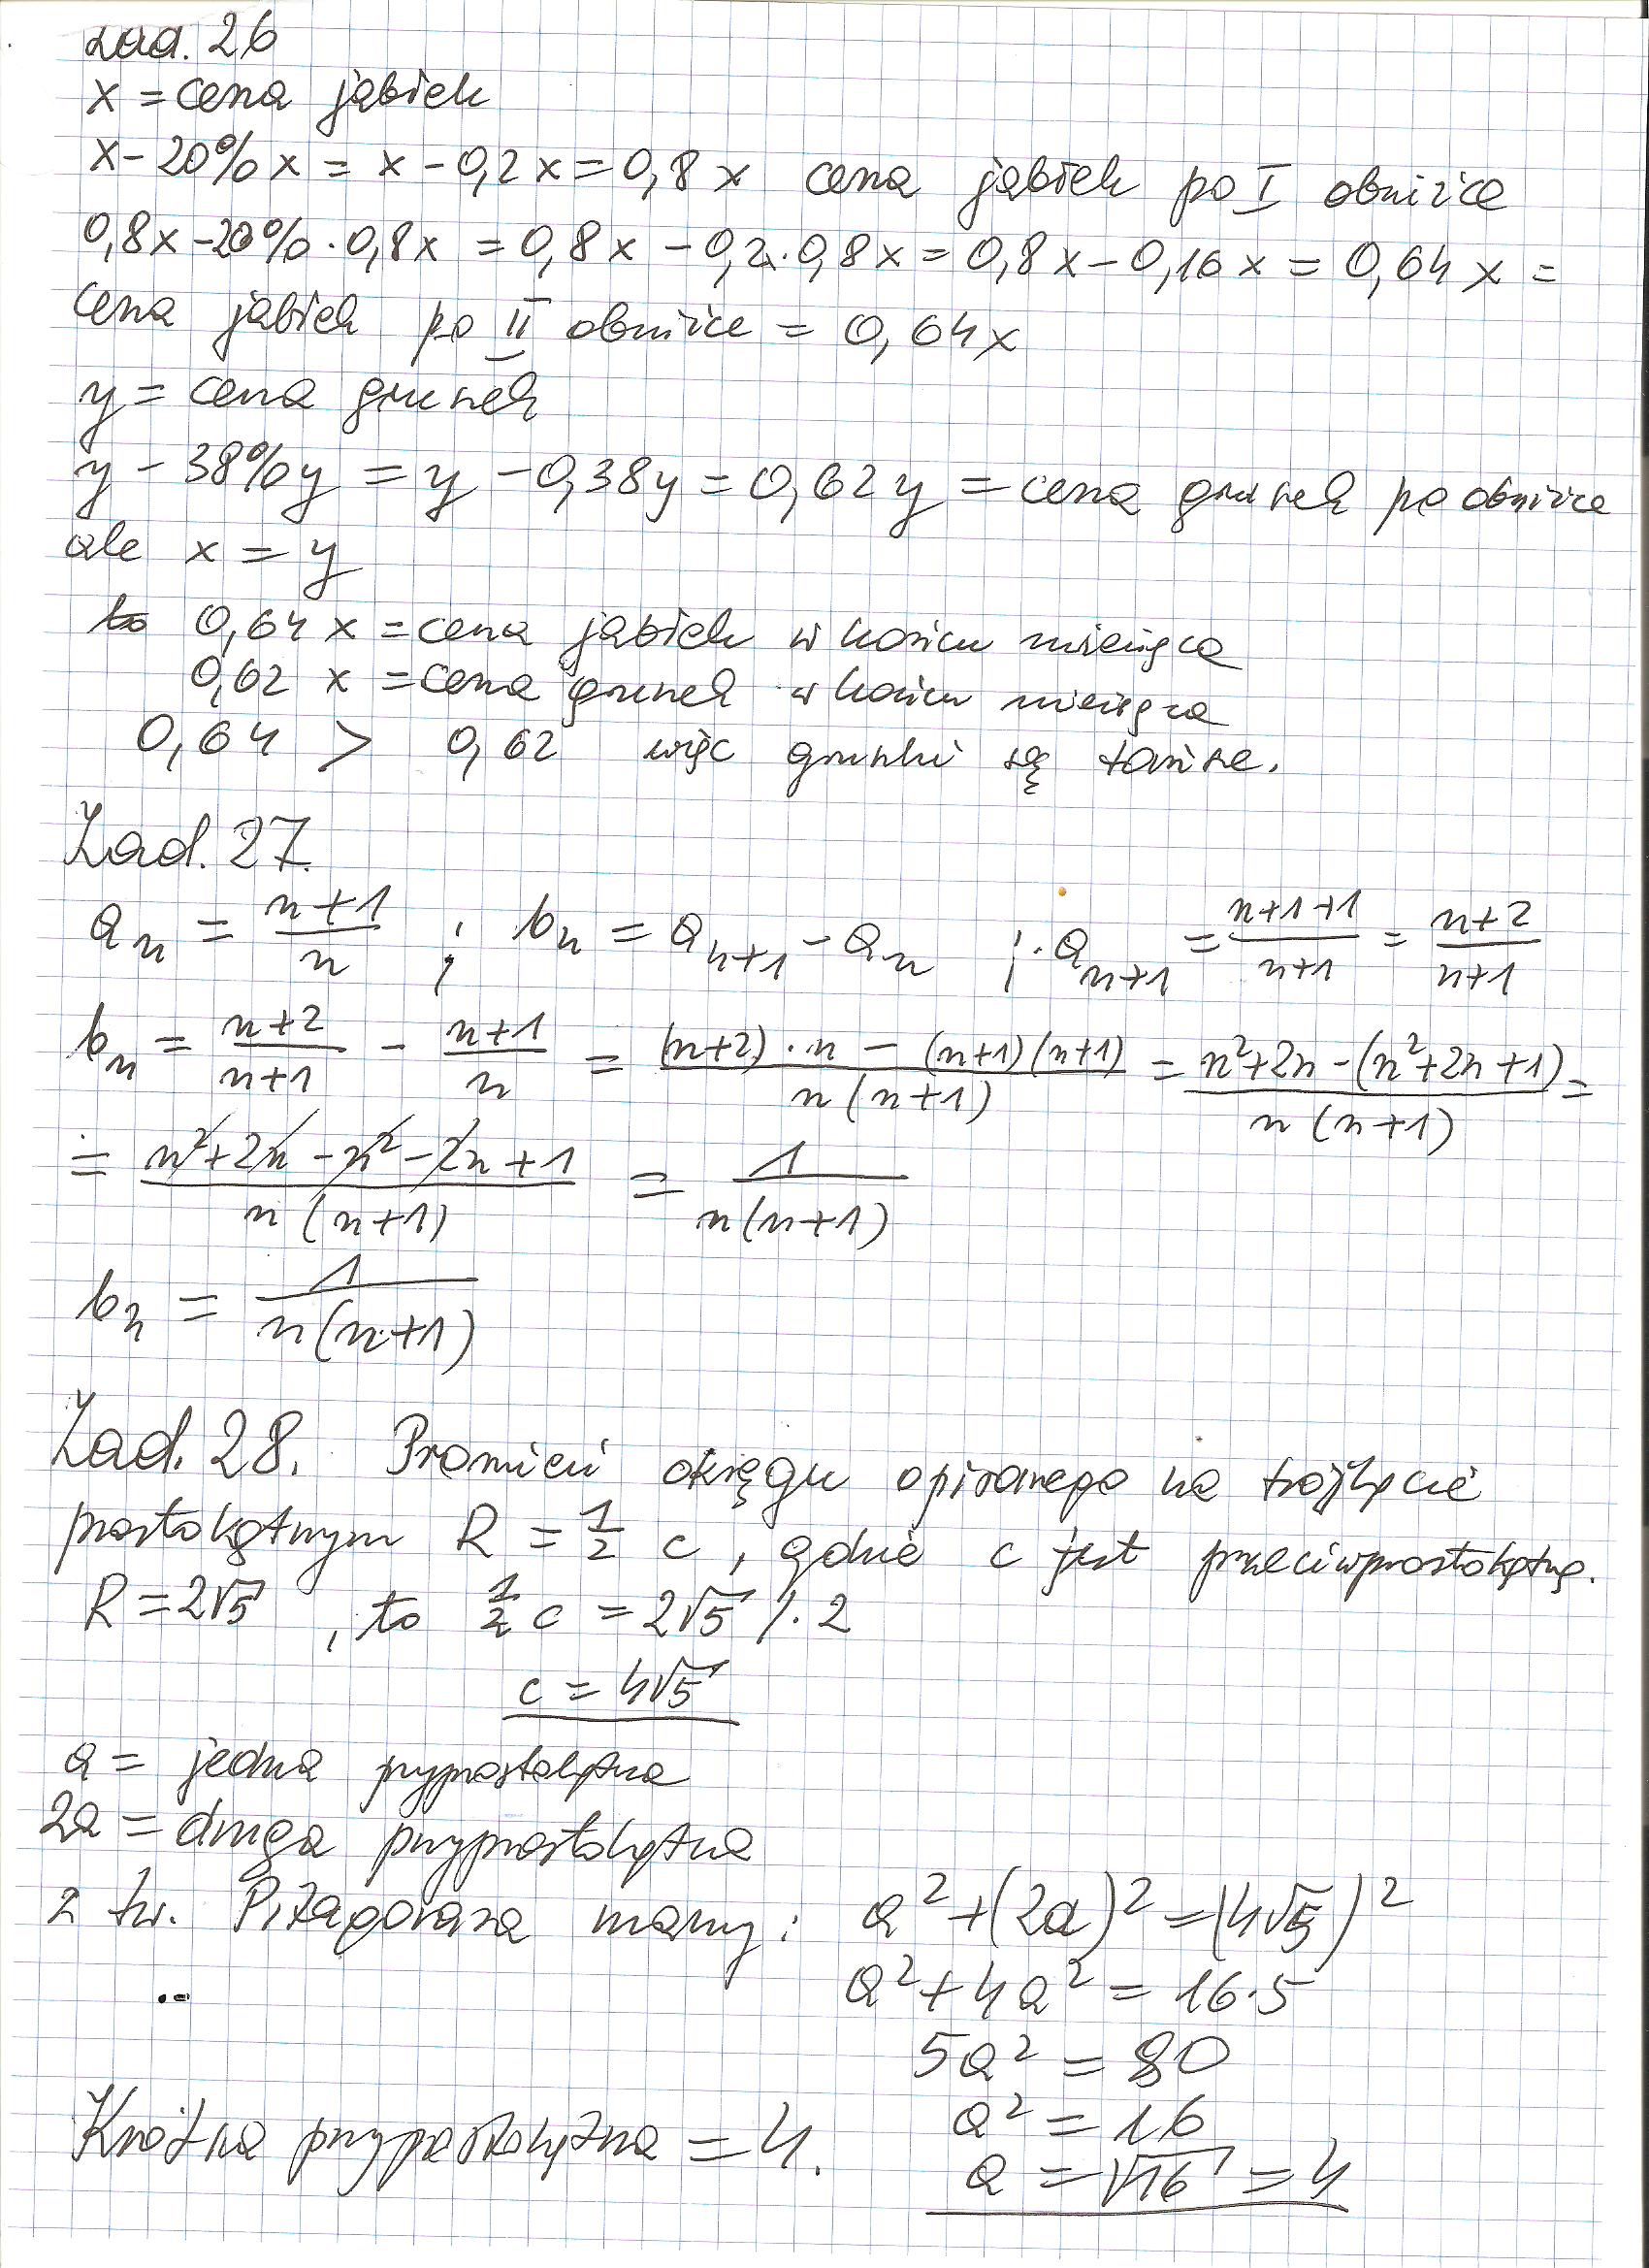 Zad. 26
x = cena jabłek
x - 20% x = x - 0,2x = 0,8x cena jabłek po I obniżce
0,8x - 20% · 0,8x = 0,8x - 0,2 · 0,8x = 0,8x - 0,16x = 0,64x =
cena jabłek po II obniżce = 0,64x
y = cena gruszek
y - 38% y = y - 0,38y = 0,62y = cena gruszek po obniżce
ale x = y
to 0,64 x = cena jabłek w końcu miesiąca
0,62 x = cena gruszek w końcu miesiąca
0,64 > 0,62 więc gruszki są tańsze.
Zad. 27.
aₙ = (n+1)/n ; bₙ = aₙ₊₁ - aₙ ; aₙ₊₁ = (n+1+1)/(n+1) = (n+2)/(n+1)
bₙ = (n+2)/(n+1) - (n+1)/n = ((n+2)·n - (n+1)(n+1))/(n(n+1)) = (n²+2n-(n²+2n+1))/(n(n+1)) =
= (n²+2n-n²-2n+1)/(n(n+1)) = 1/(n(n+1))
bₙ = 1/(n(n+1))
Zad. 28. Promień okręgu opisanego na trójkącie
prostokątnym R = 1/2 c, gdzie c jest przeciwprostokątną.
R = 2√5 , to 1/2 c = 2√5 /· 2
c = 4√5
a = jedna przyprostokątna
2a = druga przyprostokątna
z tw. Pitagorasa mamy: a² + (2a)² = (4√5)²
a² + 4a² = 16·5
5a² = 80
a² = 16
Krótsza przyprostokątna = 4.
a = √16 = 4